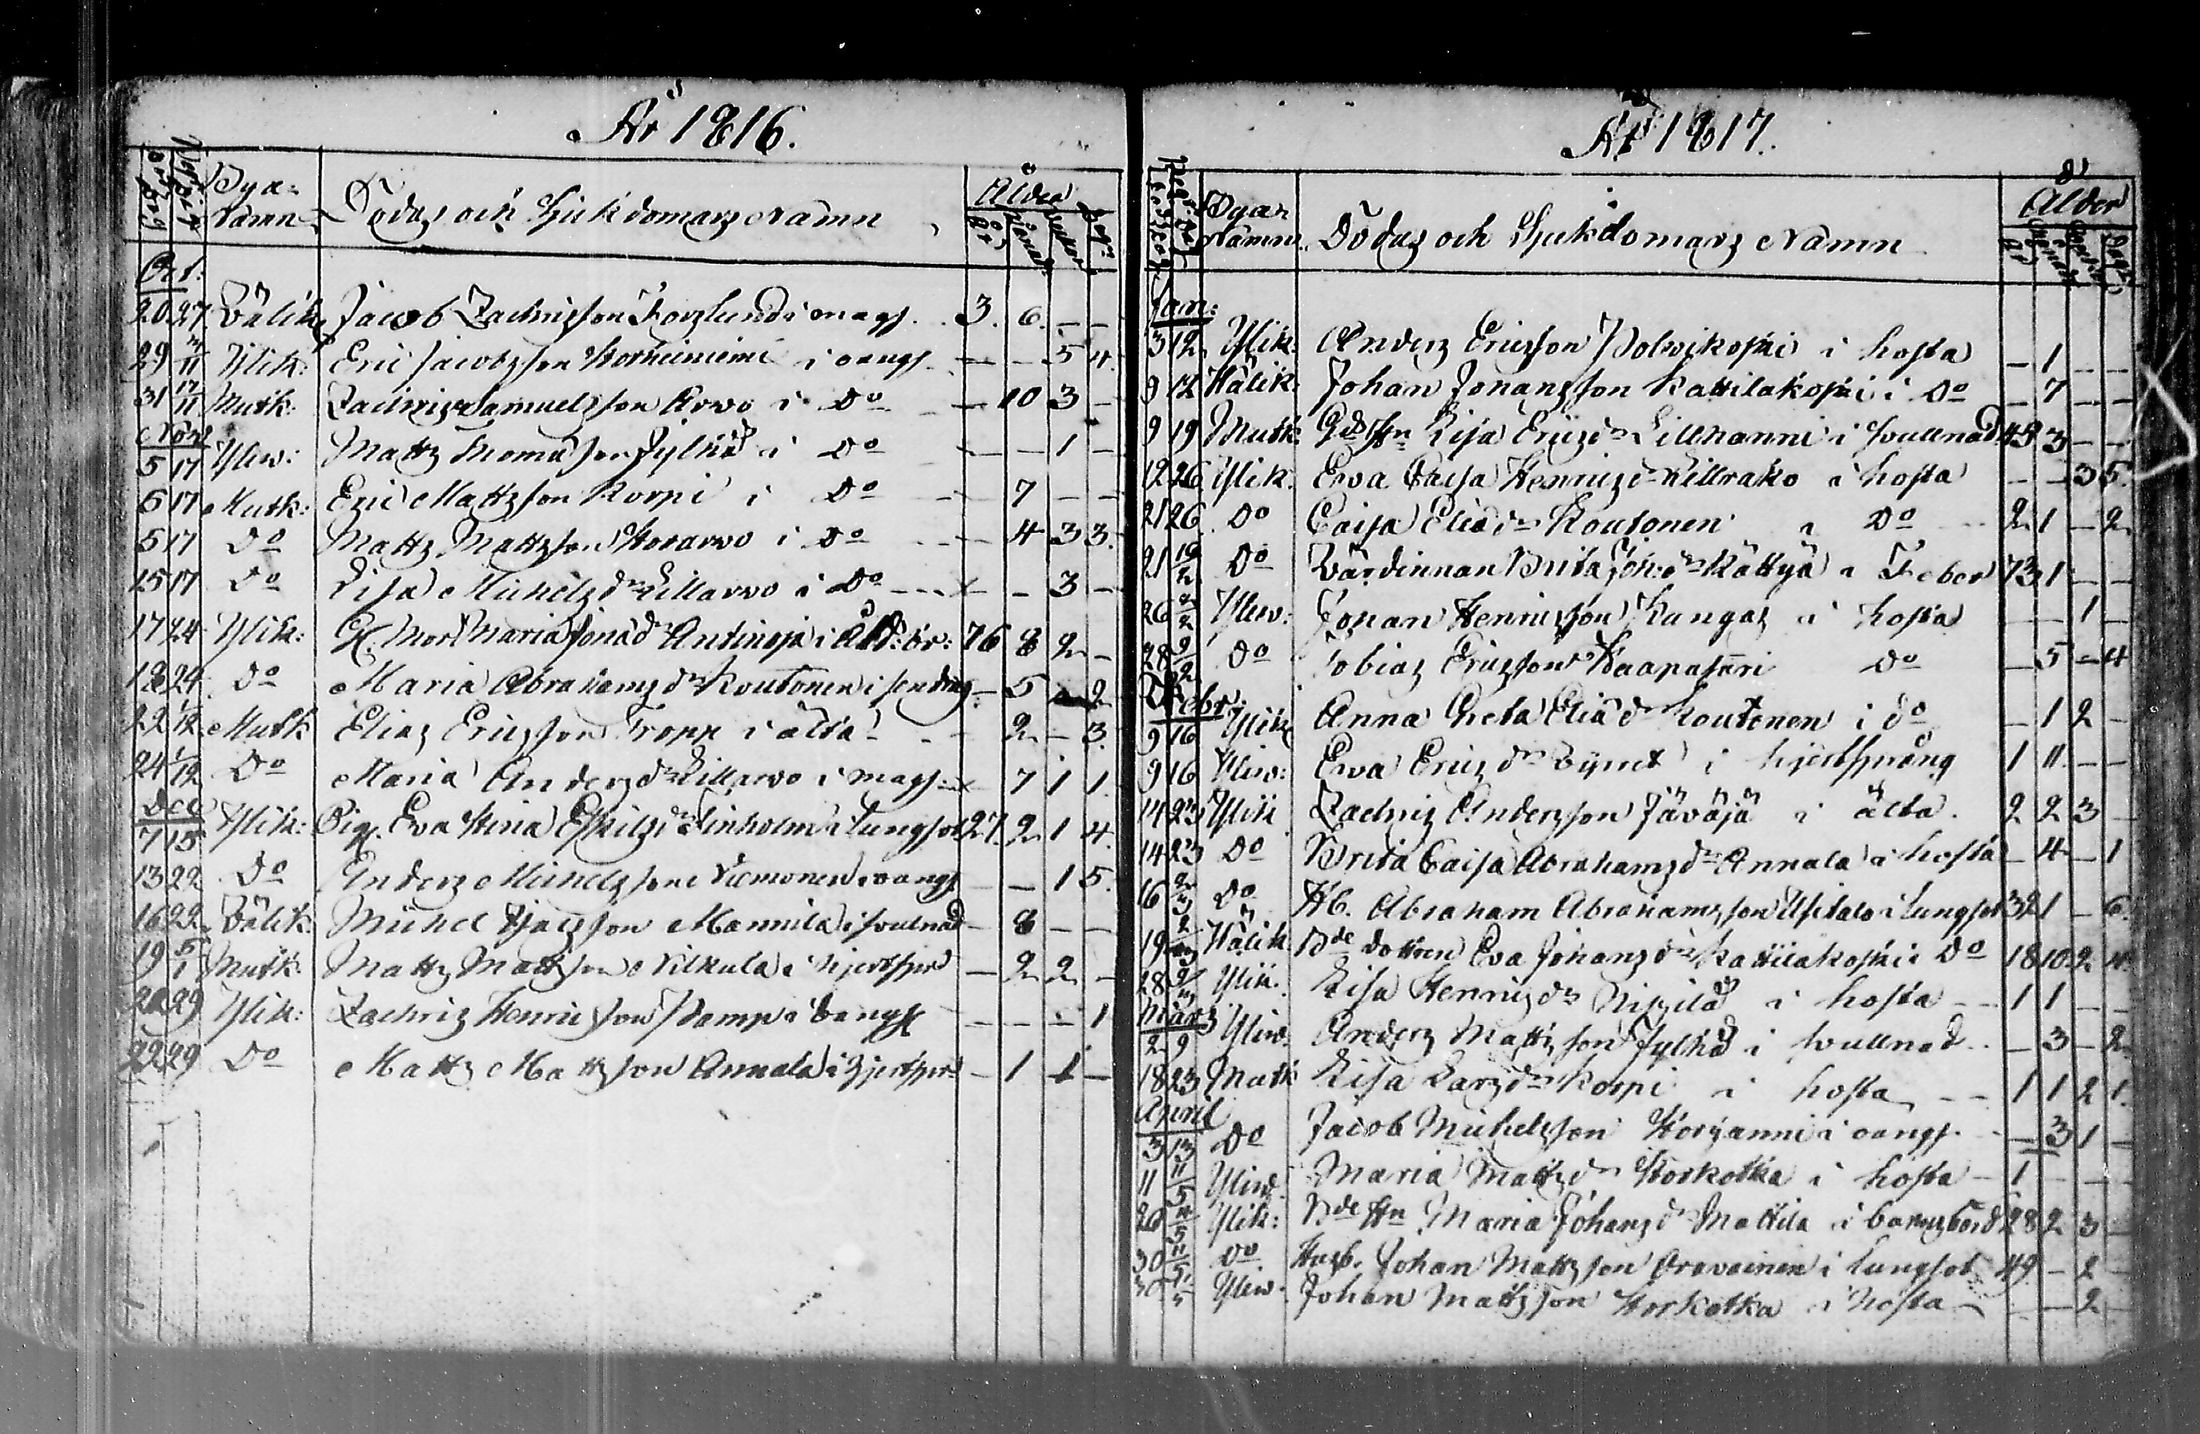 År 1816.
Bya-
namn
Dödas och Sjukdomars Namn
Ålder
År
Oct:
20 27 Wälik Jacob Zachrisson Forslund i magf. 3. 6. - -
29 3/11 Ylik: Eric Jacobsson Storheiniemi i oangf. - - 5 4.
31 17/11 Mutk: Zachris Samuelsson Arvo i Do - 10 3 -
Nov
5 17 Yliw: Matts Thomasson Jylhä i Do - - 1 -
5 17 Mutk: Eric Mattsson Korpi i Do - 7 - -
5 17 Do Matts Mattsson Storarvo i Do - 4 3 3.
15 17 Do Lisa Michelsdr Lillarvo i Do - - 3 -
17 24 Ylik: Maria Jonadr Antinoja i Åld:br: 76 8 2 -
18 24 Do Maria Abrahamsdr Koutonen i - 5 - 2
22 1/12 Mutk Elias Ericsson Tropp i älta - 2 - 3.
24 1/12 Do Maria Andersdr Lillarvo i magf. - 7 1 1.
Dec
7 15 Ylik: Pig. Eva Stina Eskilsdr Finholm i Lungsot 27. 2 1 4.
13 22 Do Anders Michelsson Niemonen i oangf - - 1 5.
16 22 Wälik: Michel Mannila i svulnad - 8 - -
19 5/1 Mutk: Matts Mattsson Nikula i hjertspr - 2 2 -
20 29 Ylik: Zachris Henricsson Kamp i oangf - - - 1
22 29 Do Matts Mattsson Annala i hjertspr - 1 1 -
År 1817.
Bya-
namn
Dödas och Sjukdomars Namn
Ålder
År
Jan:
3 12 Ylik: Anders Ericsson Polwikoski i hosta - 1 - -
9 12 Wälik: Johan Johansson Kattilakoski i Do - 7 - -
9 19 Mutk: Lisa Ericsdr Lillhanni i svullnad 43 3 - -
12 26 Ylik. Ewa Caisa Henricsdr Lillrako i hosta - - 3 5.
21 26 Do Caisa Eliædr Koutonen i Do 2 1 - 2
21 Do Wärdinnan Brita Joh:dr Kättyä i Feber 73 1 - -
26 2/2 Yliw: Johan Henricsson Kangas i hosta - - 1 -
28 9/2 Do Tobias Ericsson Haapasari Do - 5 - 4
Febr.
9 16 Ylik Anna Greta Eliædr Koutonen i do - 1 2 -
9 16 Yliw: Ewa Ericsdr i hjertsprång 1 11 - -
14 23 Ylik Zachris Andersson Jäväjä i älta. 2 2 3 -
14 23 Do Brita Caisa Abrahamsdr Annala i hosta - 4 - 1
16 2/3 Do Hb. Abraham Abrahamsson Ylitalo i Lungsot 32 1 - 6.
19 2/3 Wälik Bde dottren Eva Johansdr Kattilakoski i Do 18 10 2 4.
28 9/3 Ylik. Lisa Henricsdr i hosta 1 1 - -
Mars
2 9 Yliw. Anders Mattsson Jylhä i svullnad - 3 - 2
18 23 Mutk Lisa Larsdr Korpi i hosta 1 1 2 1.
April
3 13 Do Jacob Michelsson Storjanni i oangf. - 3 1 -
11 11/5 Yliw. Maria Mattsdr Storkotka i hosta - 1 - - -
20 4/5 Ylik: Bde Hn Maria Johansdr Mattila i barnsbörd 28 2 3 -
30 11/5 Do Husb. Johan Mattsson Oravainen i Lungsot 49 - 2 -
30 Yliw. Johan Mattsson Storkotka i hosta - - 2 -